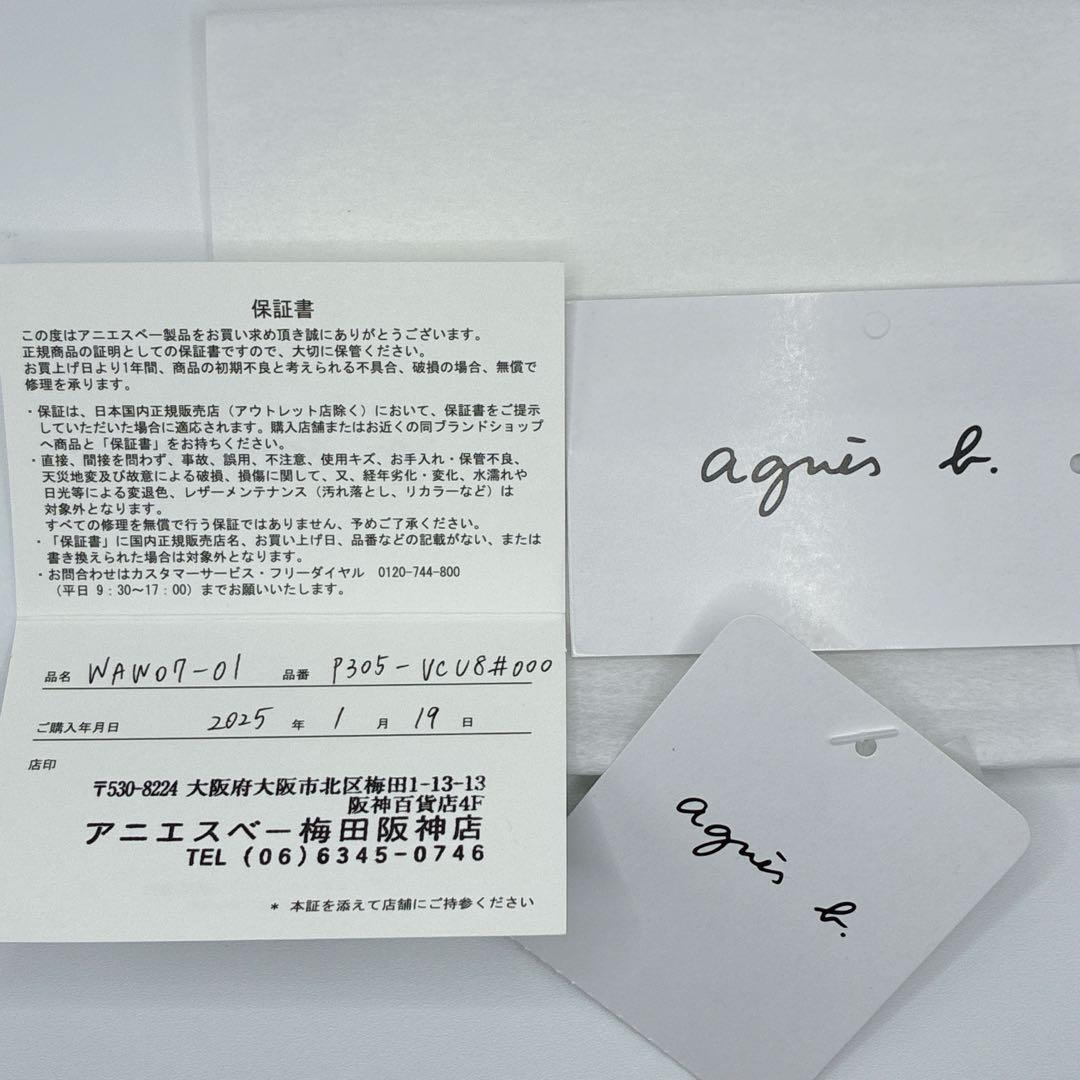 保証書
この度はアニエスベー製品をお買い求め頂き誠にありがとうございます。
正規商品の証明としての保証書ですので、大切に保管ください。
お買上げ日より1年間、商品の初期不良と考えられる不具合、破損の場合、無償で
修理を承ります。
・保証は、日本国内正規販売店（アウトレット店除く）において、保証書をご提示
していただいた場合に適応されます。購入店舗またはお近くの同ブランドショップ
へ商品と「保証書」をお持ちください。
・直接、間接を問わず、事故、誤用、不注意、使用キズ、お手入れ・保管不良、
天災地変及び故意による破損、損傷に関して、又、経年劣化・変化、水濡れや
日光等による変退色、レザーメンテナンス（汚れ落とし、リカラーなど）は
対象外となります。
すべての修理を無償で行う保証ではありません、予めご了承ください。
・「保証書」に国内正規販売店名、お買い上げ日、品番などの記載がない、または
書き換えられた場合は対象外となります。
・お問合わせはカスタマーサービス・フリーダイヤル 0120-744-800
（平日 9：30～17：00）までお願いいたします。
品名 WAW07-01 品番 P305-VCU8#000
ご購入年月日 2025 年 1 月 19 日
店印
〒530-8224 大阪府大阪市北区梅田1-13-13
阪神百貨店4F
アニエスベー梅田阪神店
TEL (06)6345-0746
* 本証を添えて店舗にご持参ください
agnès b.
agnès b.